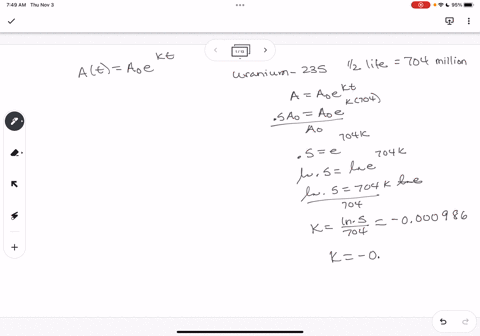 7:49 AM Thu Nov 3
95%
A(t) = A₀e^kt
uranium-235 1/2 life = 704 million
A = A₀e^kt
.5A₀ = A₀e^k(704)
A₀
.5 = e^704k
ln .5 = lne^704k
ln .5 = 704k lne
704
K = ln.5/704 = -0.000986
K = -0.